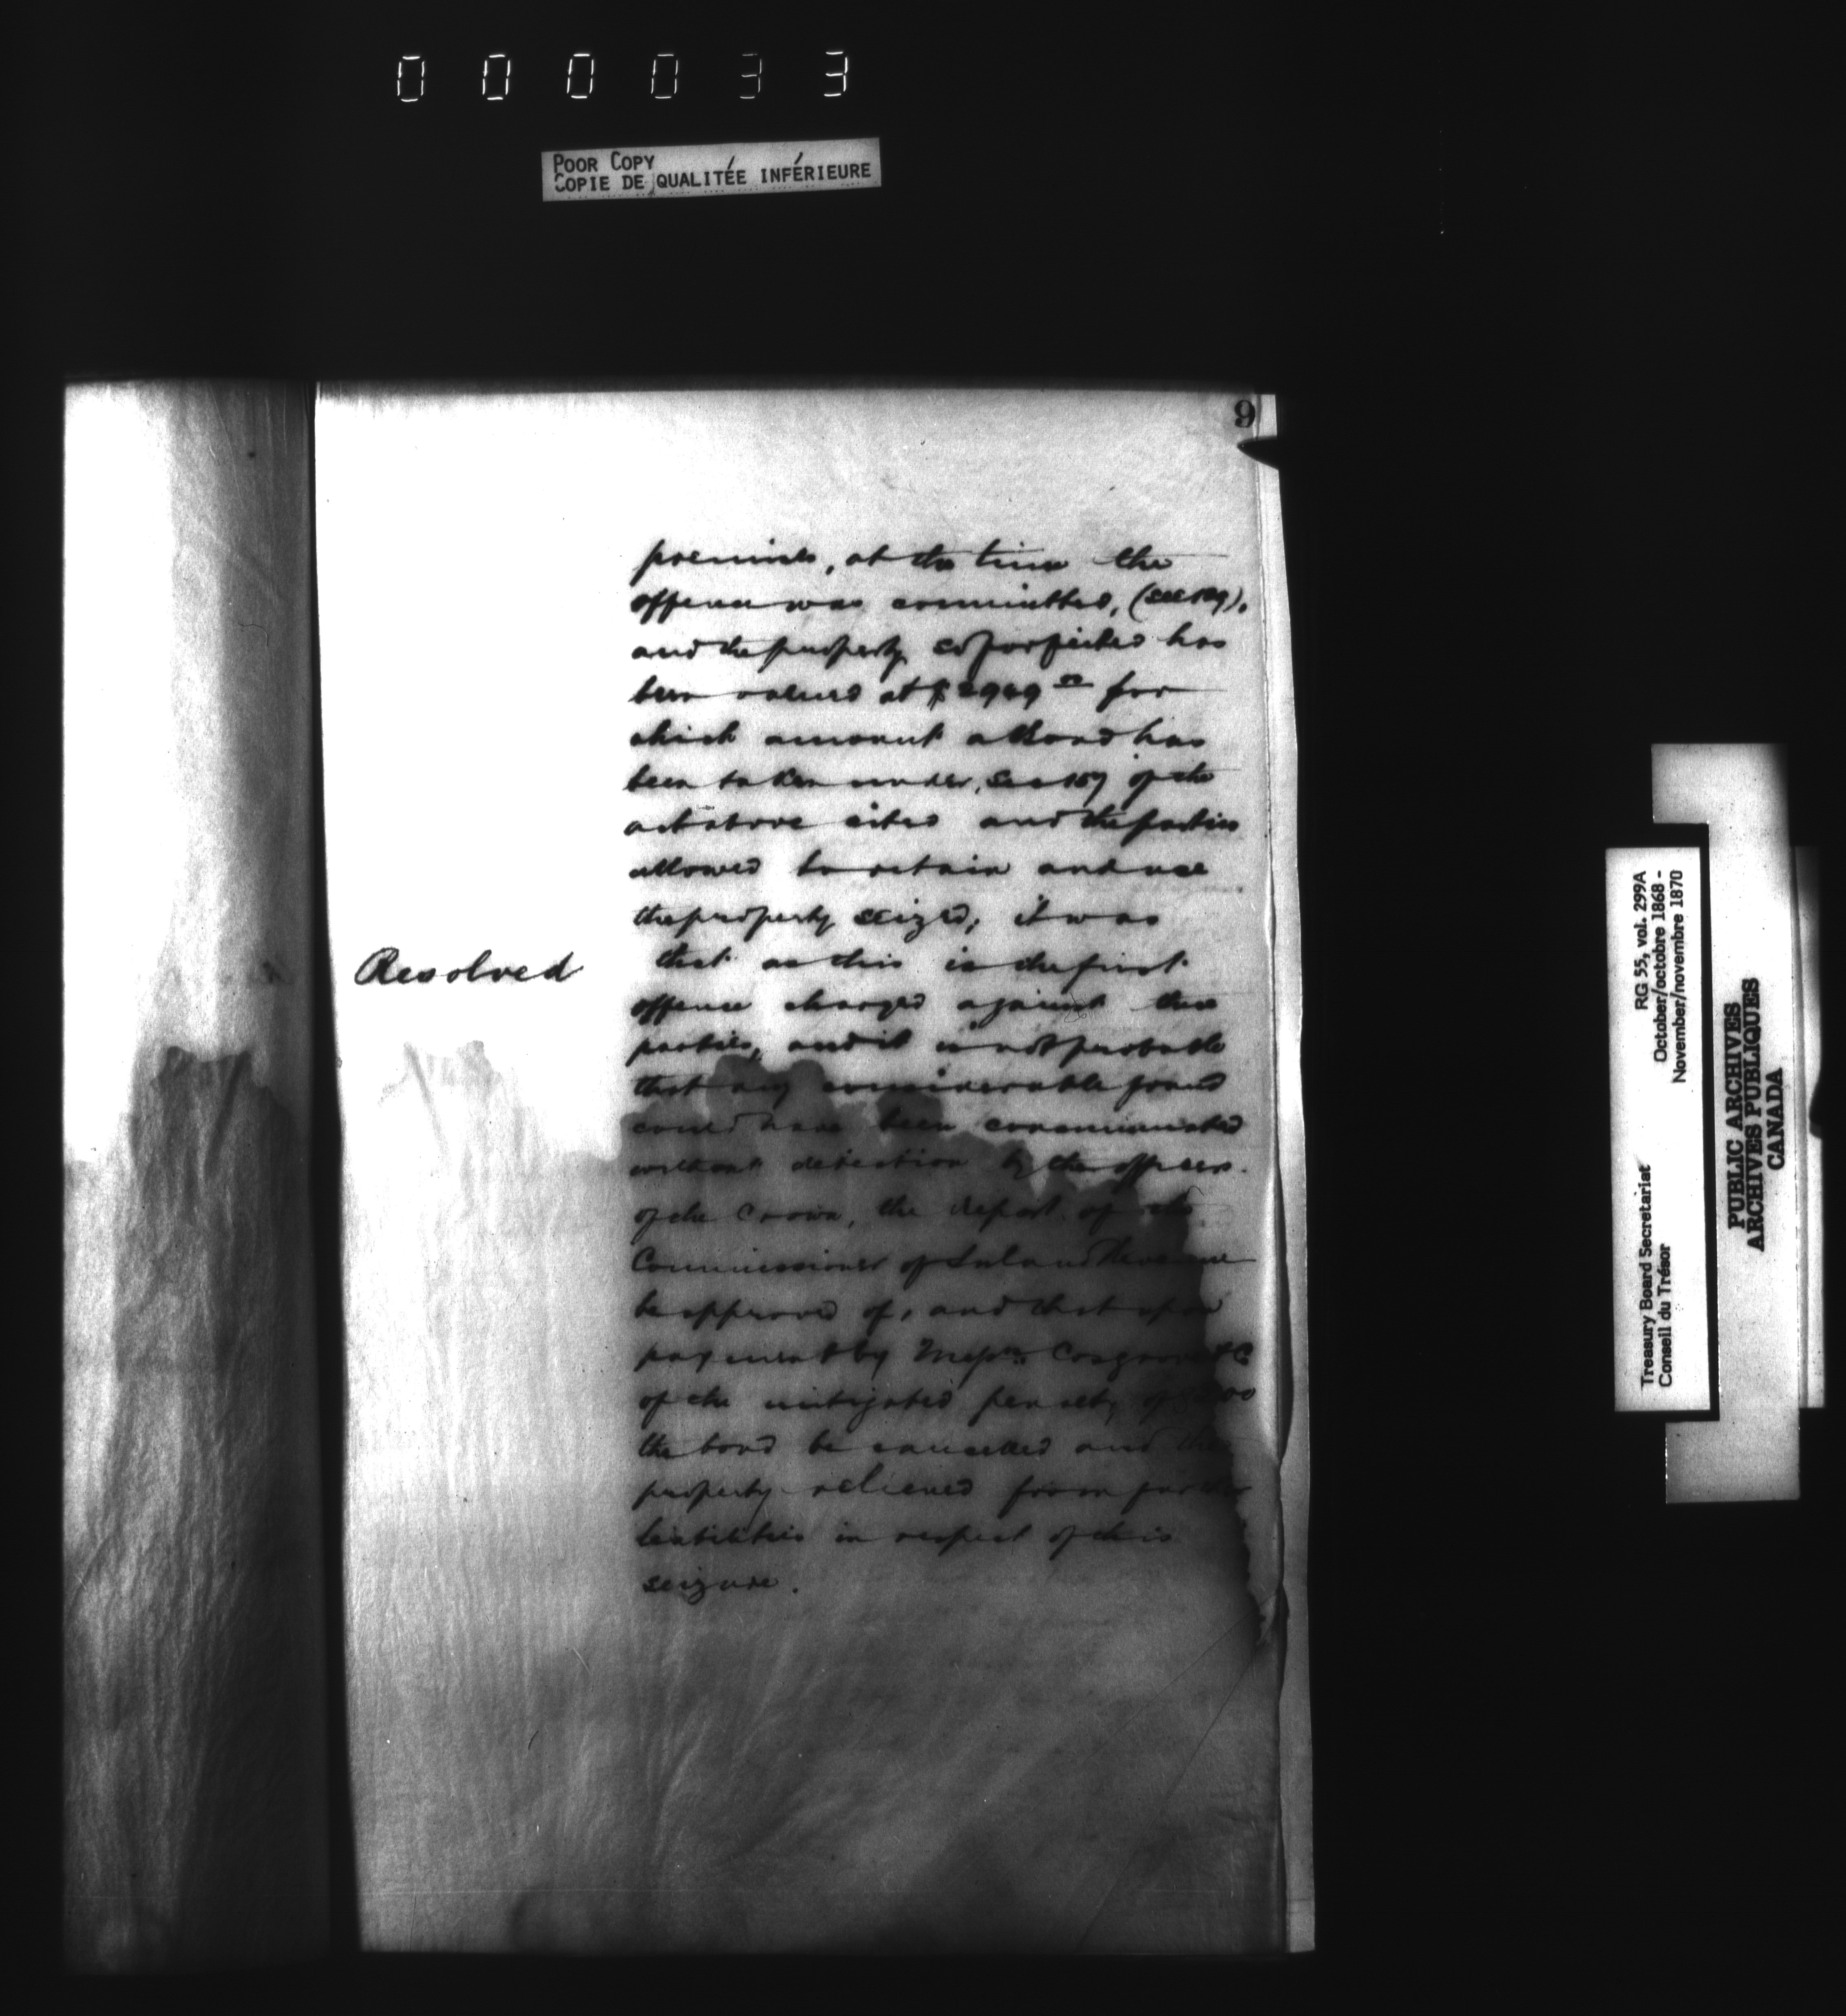 000033
POOR COPY
COPIE DE QUALITÉE INFÉRIEURE
9
premises, at the time the
offence was committed, (Sec 129),
and the property so forfeited has
been valued at $ 2949 00 for
which amount a Bond has
been taken under, Sec 157 of the
act above cited and the parties
allowed to retain and use
the property seized; it was
Resolved
that as this is the first
offence charged against these
parties, and it is not probable
that any considerable fraud
could have been consummated
without detection by the officers
of the Crown, the Report of the
Commissioner of Inland Revenue
be approved of, and that upon
payment by Messrs Cosgrove & Co
of the mitigated penalty of
the bond be cancelled and the
property relieved from further
liabilities in respect of this
seizure.
Treasury Board Secretariat
Conseil du Trésor
RG 55, vol. 299A
October/octobre 1868 -
November/novembre 1870
PUBLIC ARCHIVES
ARCHIVES PUBLIQUES
CANADA